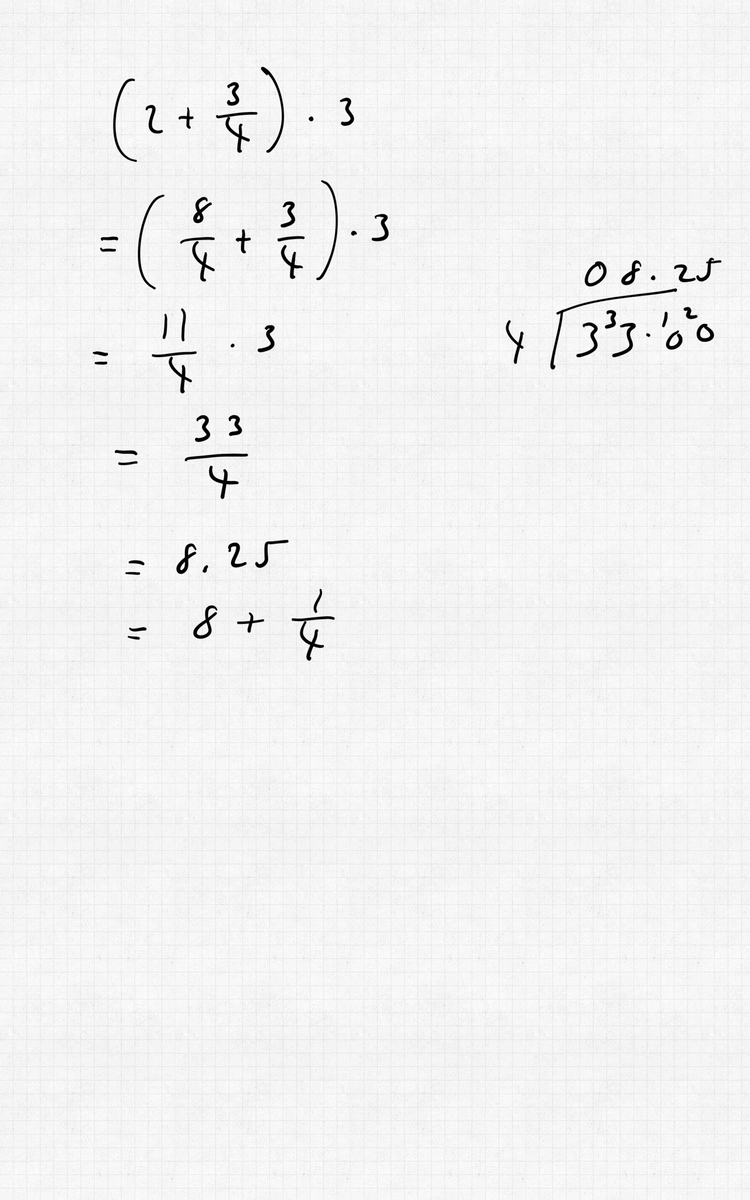 (2 + 3/4) · 3
= (8/4 + 3/4) · 3
= 11/4 · 3
= 33/4
= 8.25
= 8 + 1/4
08.25
4 ⟌ 3³3.¹0²0